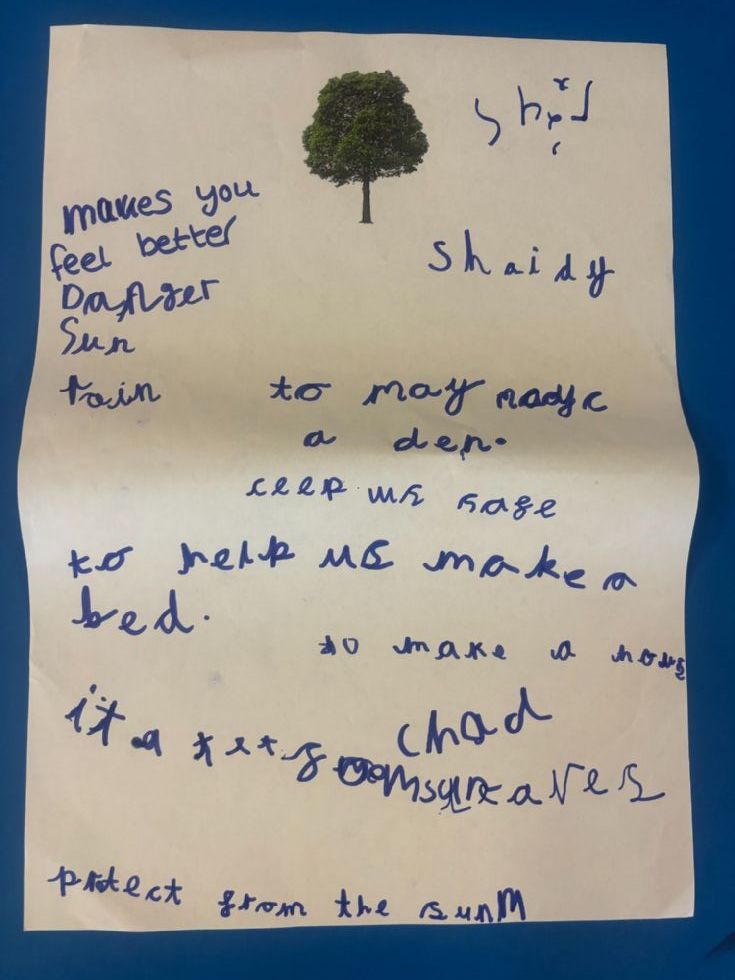 makes you
feel better
Danger
Sun
rain
Shaidy
to may
a den.
ceep us safe
to help us make a
bed.
to make a hous
it a
chad
protect from the sun